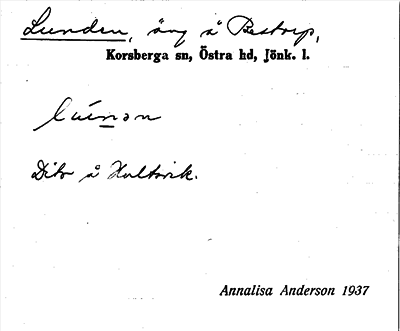 Lunden, äng å Bestorp,
Korsberga sn, Östra hd, Jönk. l.
Dito å Hultsvik.
Annalisa Anderson 1937